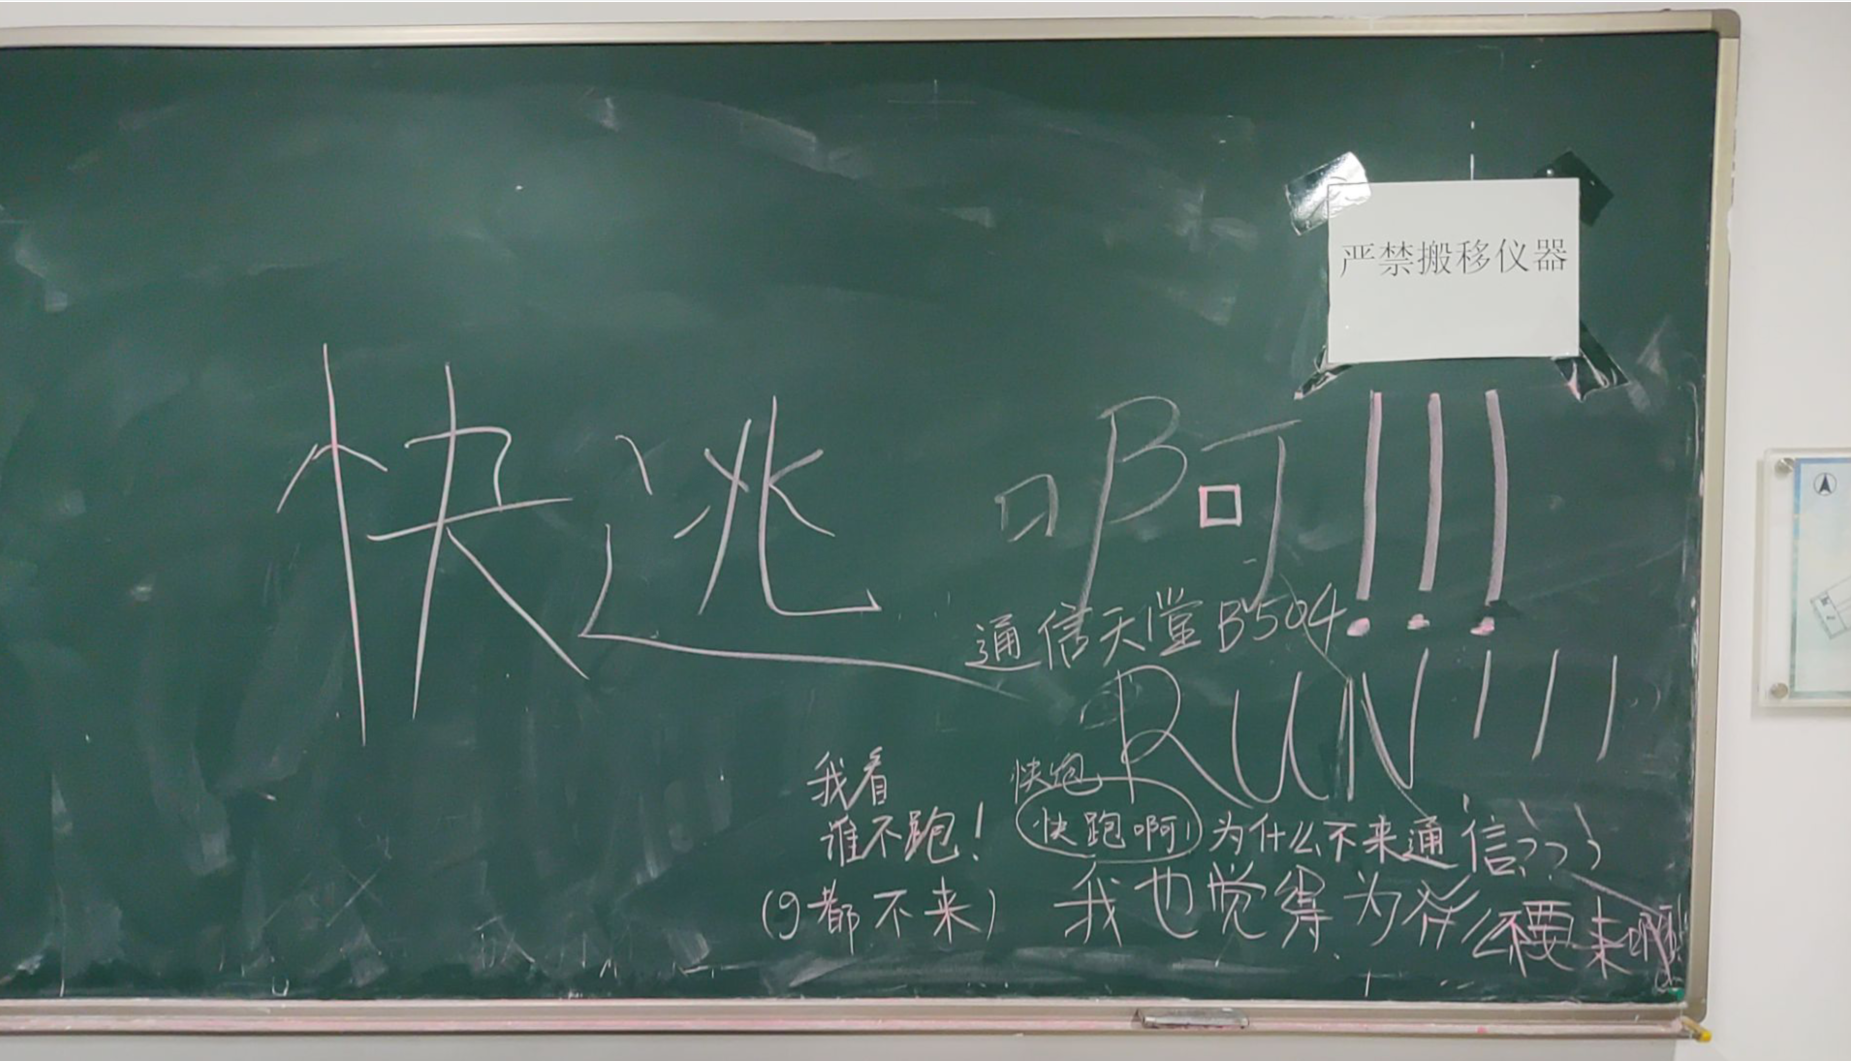 严禁搬移仪器
快逃啊!!!
通信天堂B504
RUN!!!
我看
谁不跑!
快跑
快跑啊!
为什么不来通信???
(9都不来)
我也觉得为什么不要来啊!